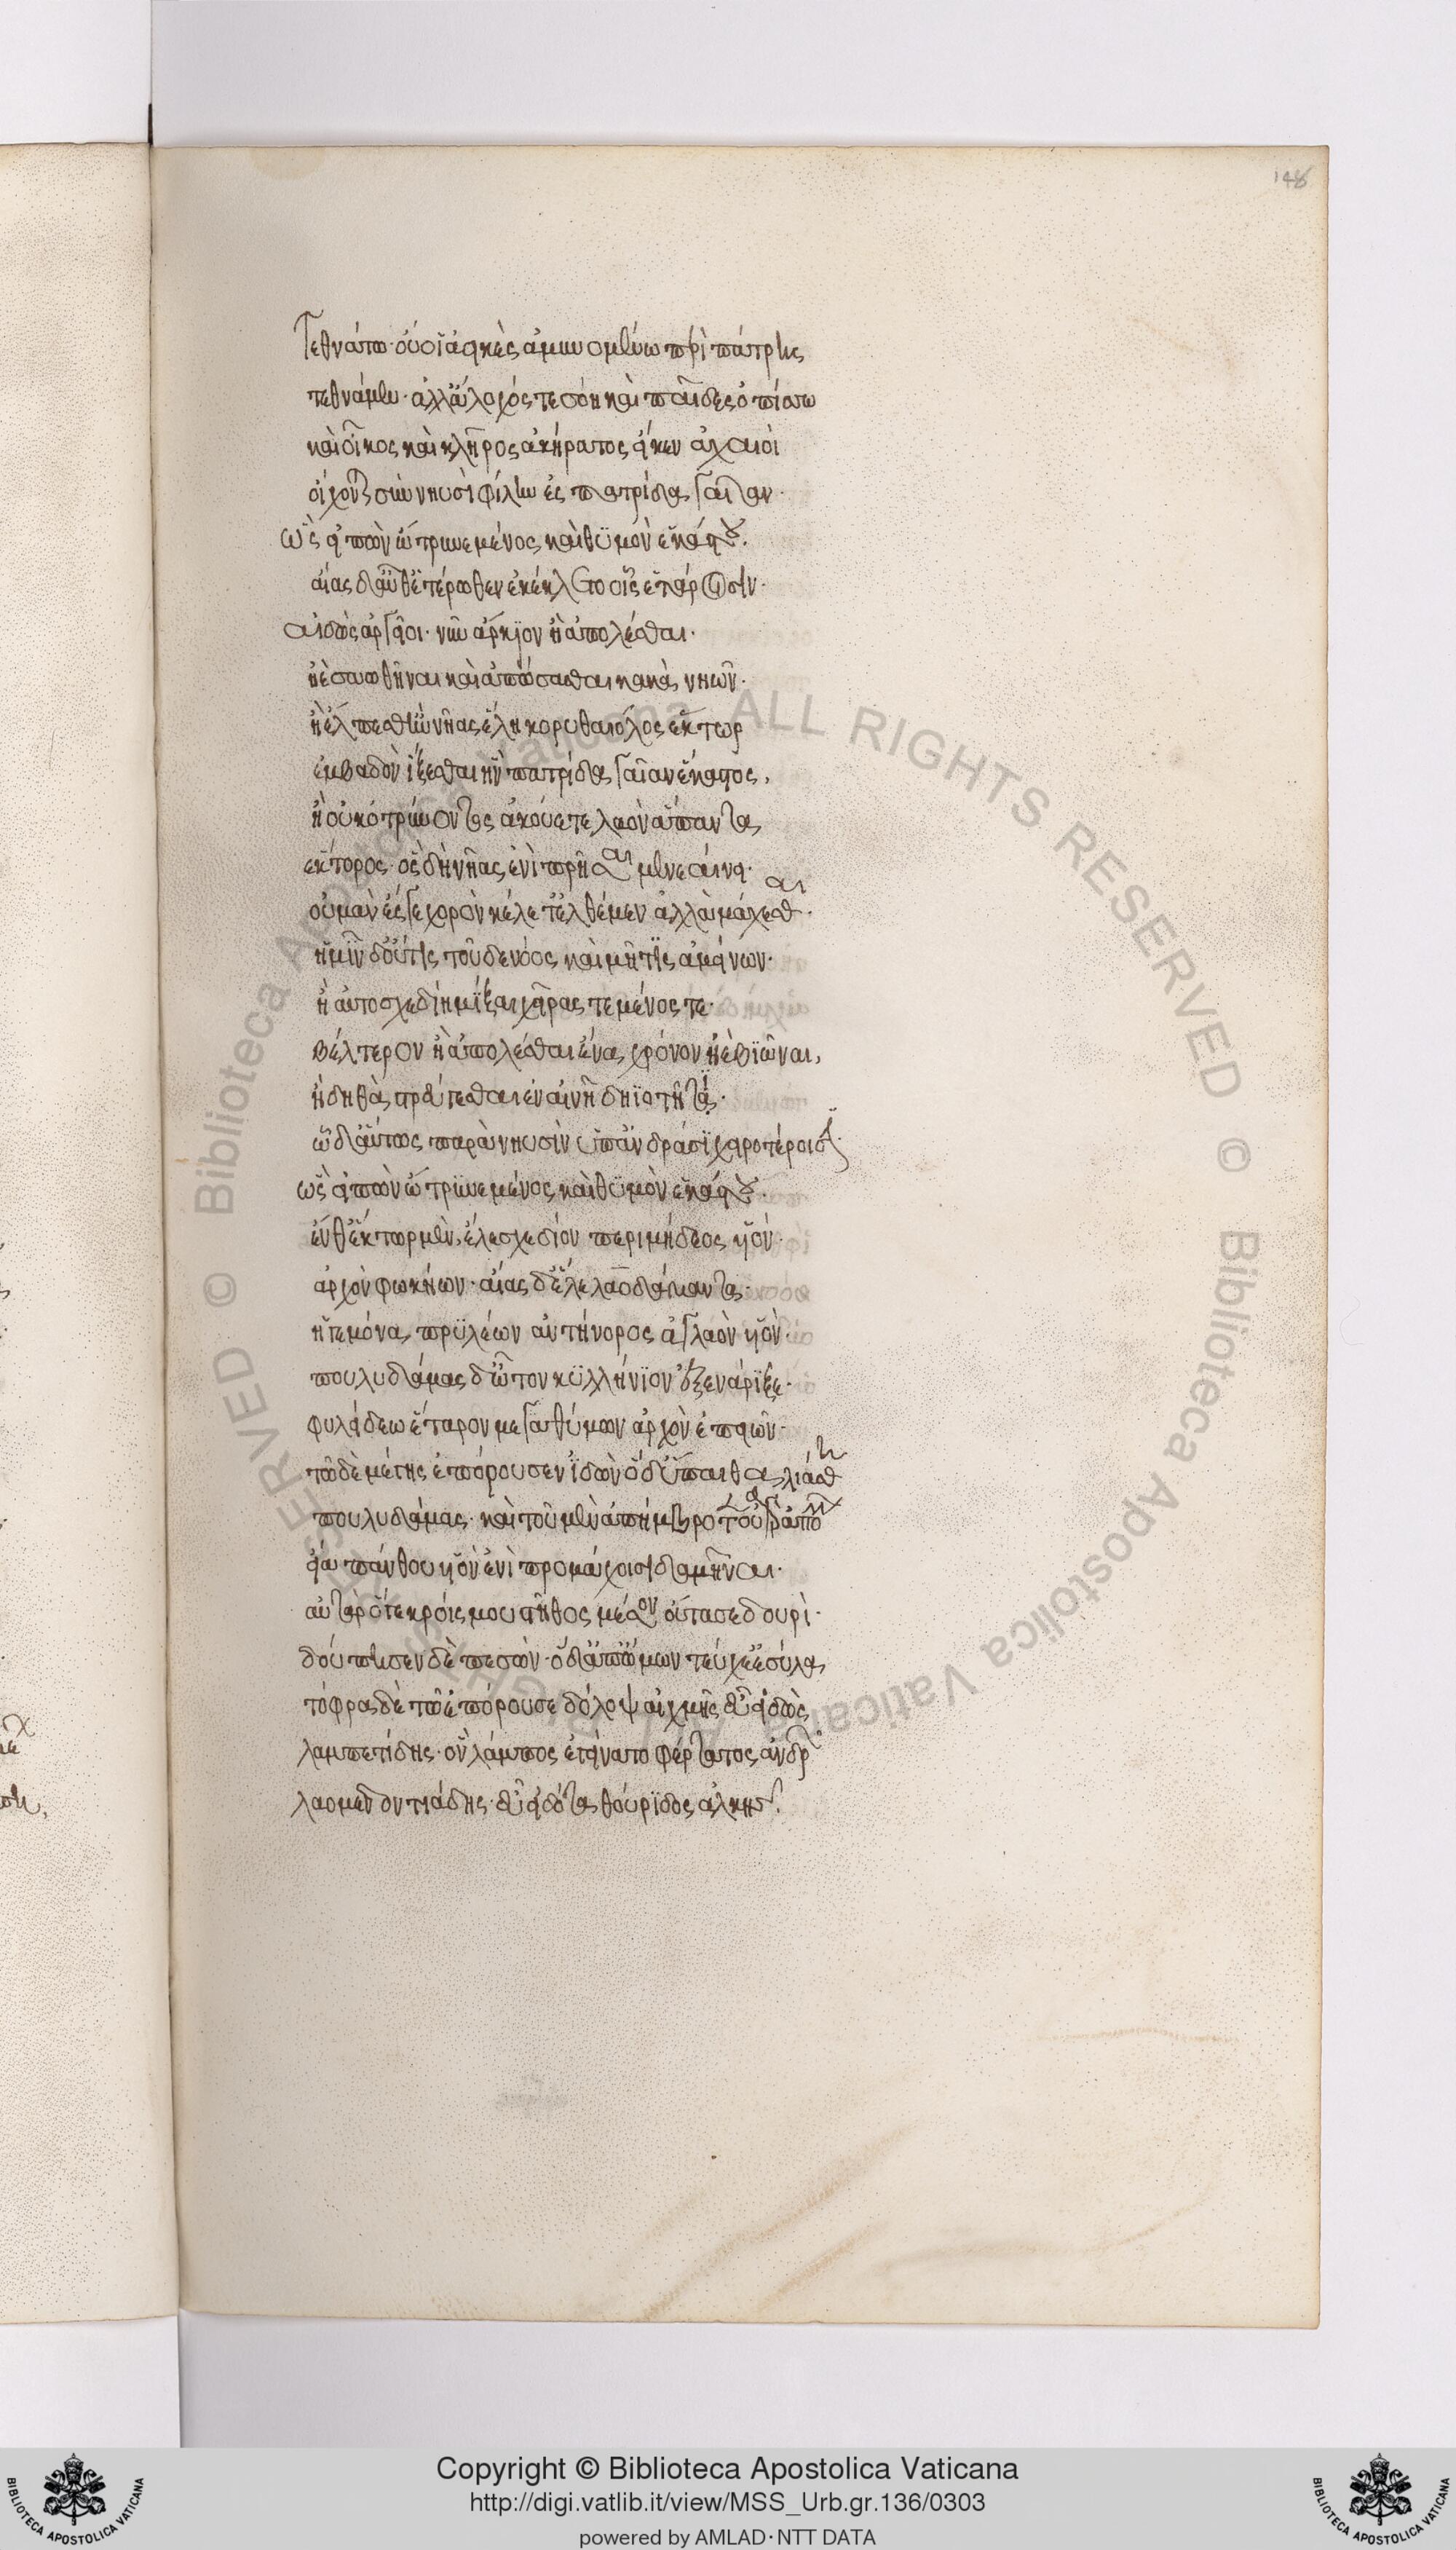 148
Τεθνάτω· οὔ οἱ ἀεικὲς ἀμυνομένω περὶ πάτρης
τεθνάμεν· ἀλλ' ἄλοχός τε σόη καὶ παῖδες ὀπίσσω
καὶ οἶκος καὶ κλῆρος ἀκήρατος εἴ κεν ἀχαιοὶ
οἴχωνται σὺν νηυσὶ φίλην ἐς πατρίδα γαῖαν·
ὣς εἰπὼν ὤτρυνε μένος καὶ θυμὸν ἑκάστου.
αἴας δ' αὖθ' ἑτέρωθεν ἐκέκλετο οἷς ἑτάροισιν·
αἰδὼς ἀργεῖοι· νῦν ἄρκιον ἢ ἀπολέσθαι·
ἠὲ σαωθῆναι καὶ ἀπώσασθαι κακὰ νηῶν·
ἢ ἔλπεσθ' ἢν νῆας ἕλη κορυθαίολος ἕκτωρ
ἐμβαδὸν ἵξεσθαι ἣν πατρίδα γαῖαν ἕκαστος,
ἢ οὐκ ὀτρύνοντος ἀκούετε λαὸν ἅπαντα
ἕκτορος· ὃς δὴ νῆας ἐνιπρῆσαι μενεαίνει·
οὐ μὰν ἔς γε χορὸν κέλετ' ἐλθέμεν ἀλλὰ μάχεσθαι·
ἡμῖν δ' οὔτις τοῦδε νόος καὶ μῆτις ἀμείνων·
ἢ αὐτοσχεδίη μῖξαι χεῖρας τε μένος τε·
βέλτερον ἢ ἀπολέσθαι ἕνα χρόνον ἠὲ βιῶναι,
ἢ δηθὰ στρεύγεσθαι ἐν αἰνῆ δηϊοτῆτι·
ὧδ' αὔτως παρὰ νηυσὶν ὑπ' ἀνδράσι χειροτέροισιν·
ὣς εἰπὼν ὤτρυνε μένος καὶ θυμὸν ἑκάστου.
ἔνθ' ἕκτωρ μὲν ἕλε σχεδίον περιμήδεος υἱόν·
ἀρχὸν φωκήων· αἴας δ' ἕλε λαοδάμαντα·
ἡγεμόνα πρυλέων ἀντήνορος ἀγλαὸν υἱόν·
πουλυδάμας δ' ὦτον κυλλήνιον ἐξενάριξε·
φυλείδεω ἕταρον μεγαθύμων ἀρχὸν ἐπειῶν·
τῶ δὲ μέγης ἐπόρουσεν ἰδών ὁ δ' ὕπαιθα λιάσθη
πουλυδάμας· καὶ τοῦ μὲν ἀπήμβροτεν· οὐ γὰρ ἀπόλλων
εἴα πάνθου υἱὸν ἐνὶ προμάχοισι δαμῆναι·
αὐτὰρ ὅγε κροίσμου στῆθος μέσον οὔτασε δουρὶ·
δούπησεν δὲ πεσών· ὁ δ' ἀπ' ὤμων τεύχε' ἐσύλα,
τόφρα δὲ τῶ ἐπόρουσε δόλοψ αἰχμῆς εὖ εἰδὼς
λαμπετίδης· ὃν λάμπος ἐγείνατο φέρτατος ἀνδρῶν
λαομεδοντιάδης· εὖ εἰδότα θούριδος ἀλκῆς.
© Biblioteca Apostolica Vaticana ALL RIGHTS RESERVED © Biblioteca Apostolica Vaticana ALL RIGHTS RESERVED
Copyright © Biblioteca Apostolica Vaticana
http://digi.vatlib.it/view/MSS_Urb.gr.136/0303
powered by AMLAD·NTT DATA
BIBLIOTECA APOSTOLICA VATICANA
BIBLIOTECA APOSTOLICA VATICANA